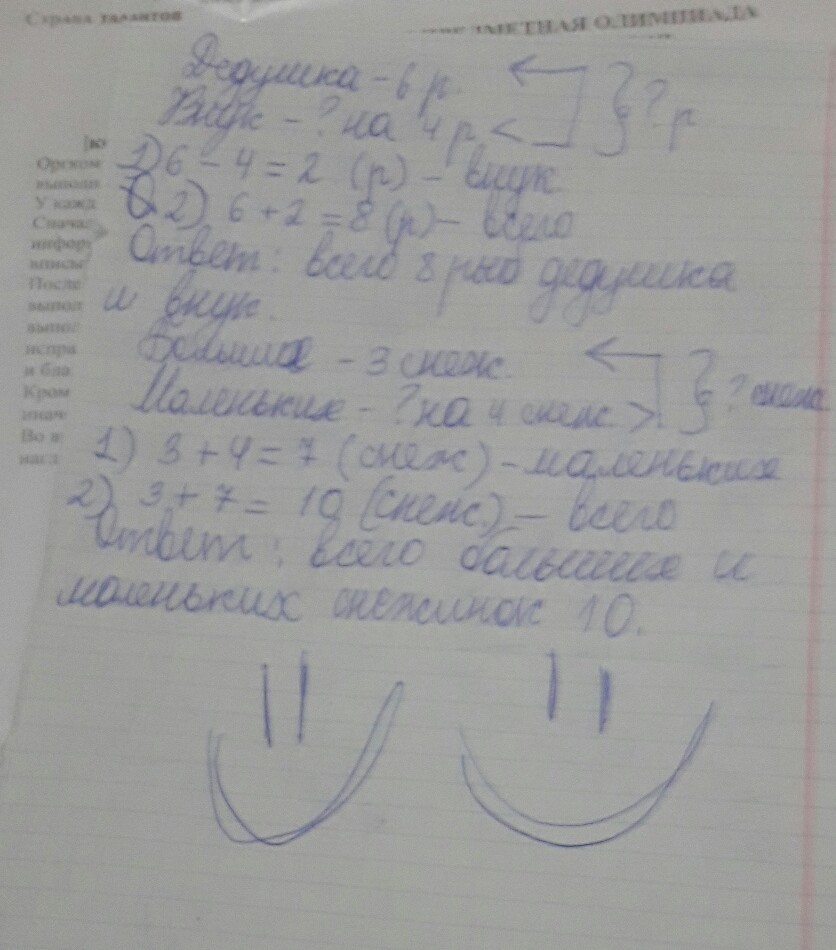 Страна талантов
ПРЕДМЕТНАЯ ОЛИМПИАДА
Дедушка - 6 р.
Внук - ? на 4 р. < } ? р
1) 6 - 4 = 2 (р) - внук
2) 6 + 2 = 8 (р) - всего
Ответ: всего 8 рыб дедушка
и внук.
Больших - 3 снеж.
Маленьких - ? на 4 снеж. > } ? снеж.
1) 3 + 4 = 7 (снеж) - маленьких
2) 3 + 7 = 10 (снеж.) - всего
Ответ: всего больших и
маленьких снежинок 10.
Оргком
выполн
У кажд
Сначал
инфор
вписы
После
выпол
выпол
испра
и бла
Кром
иначе
Во в
насл